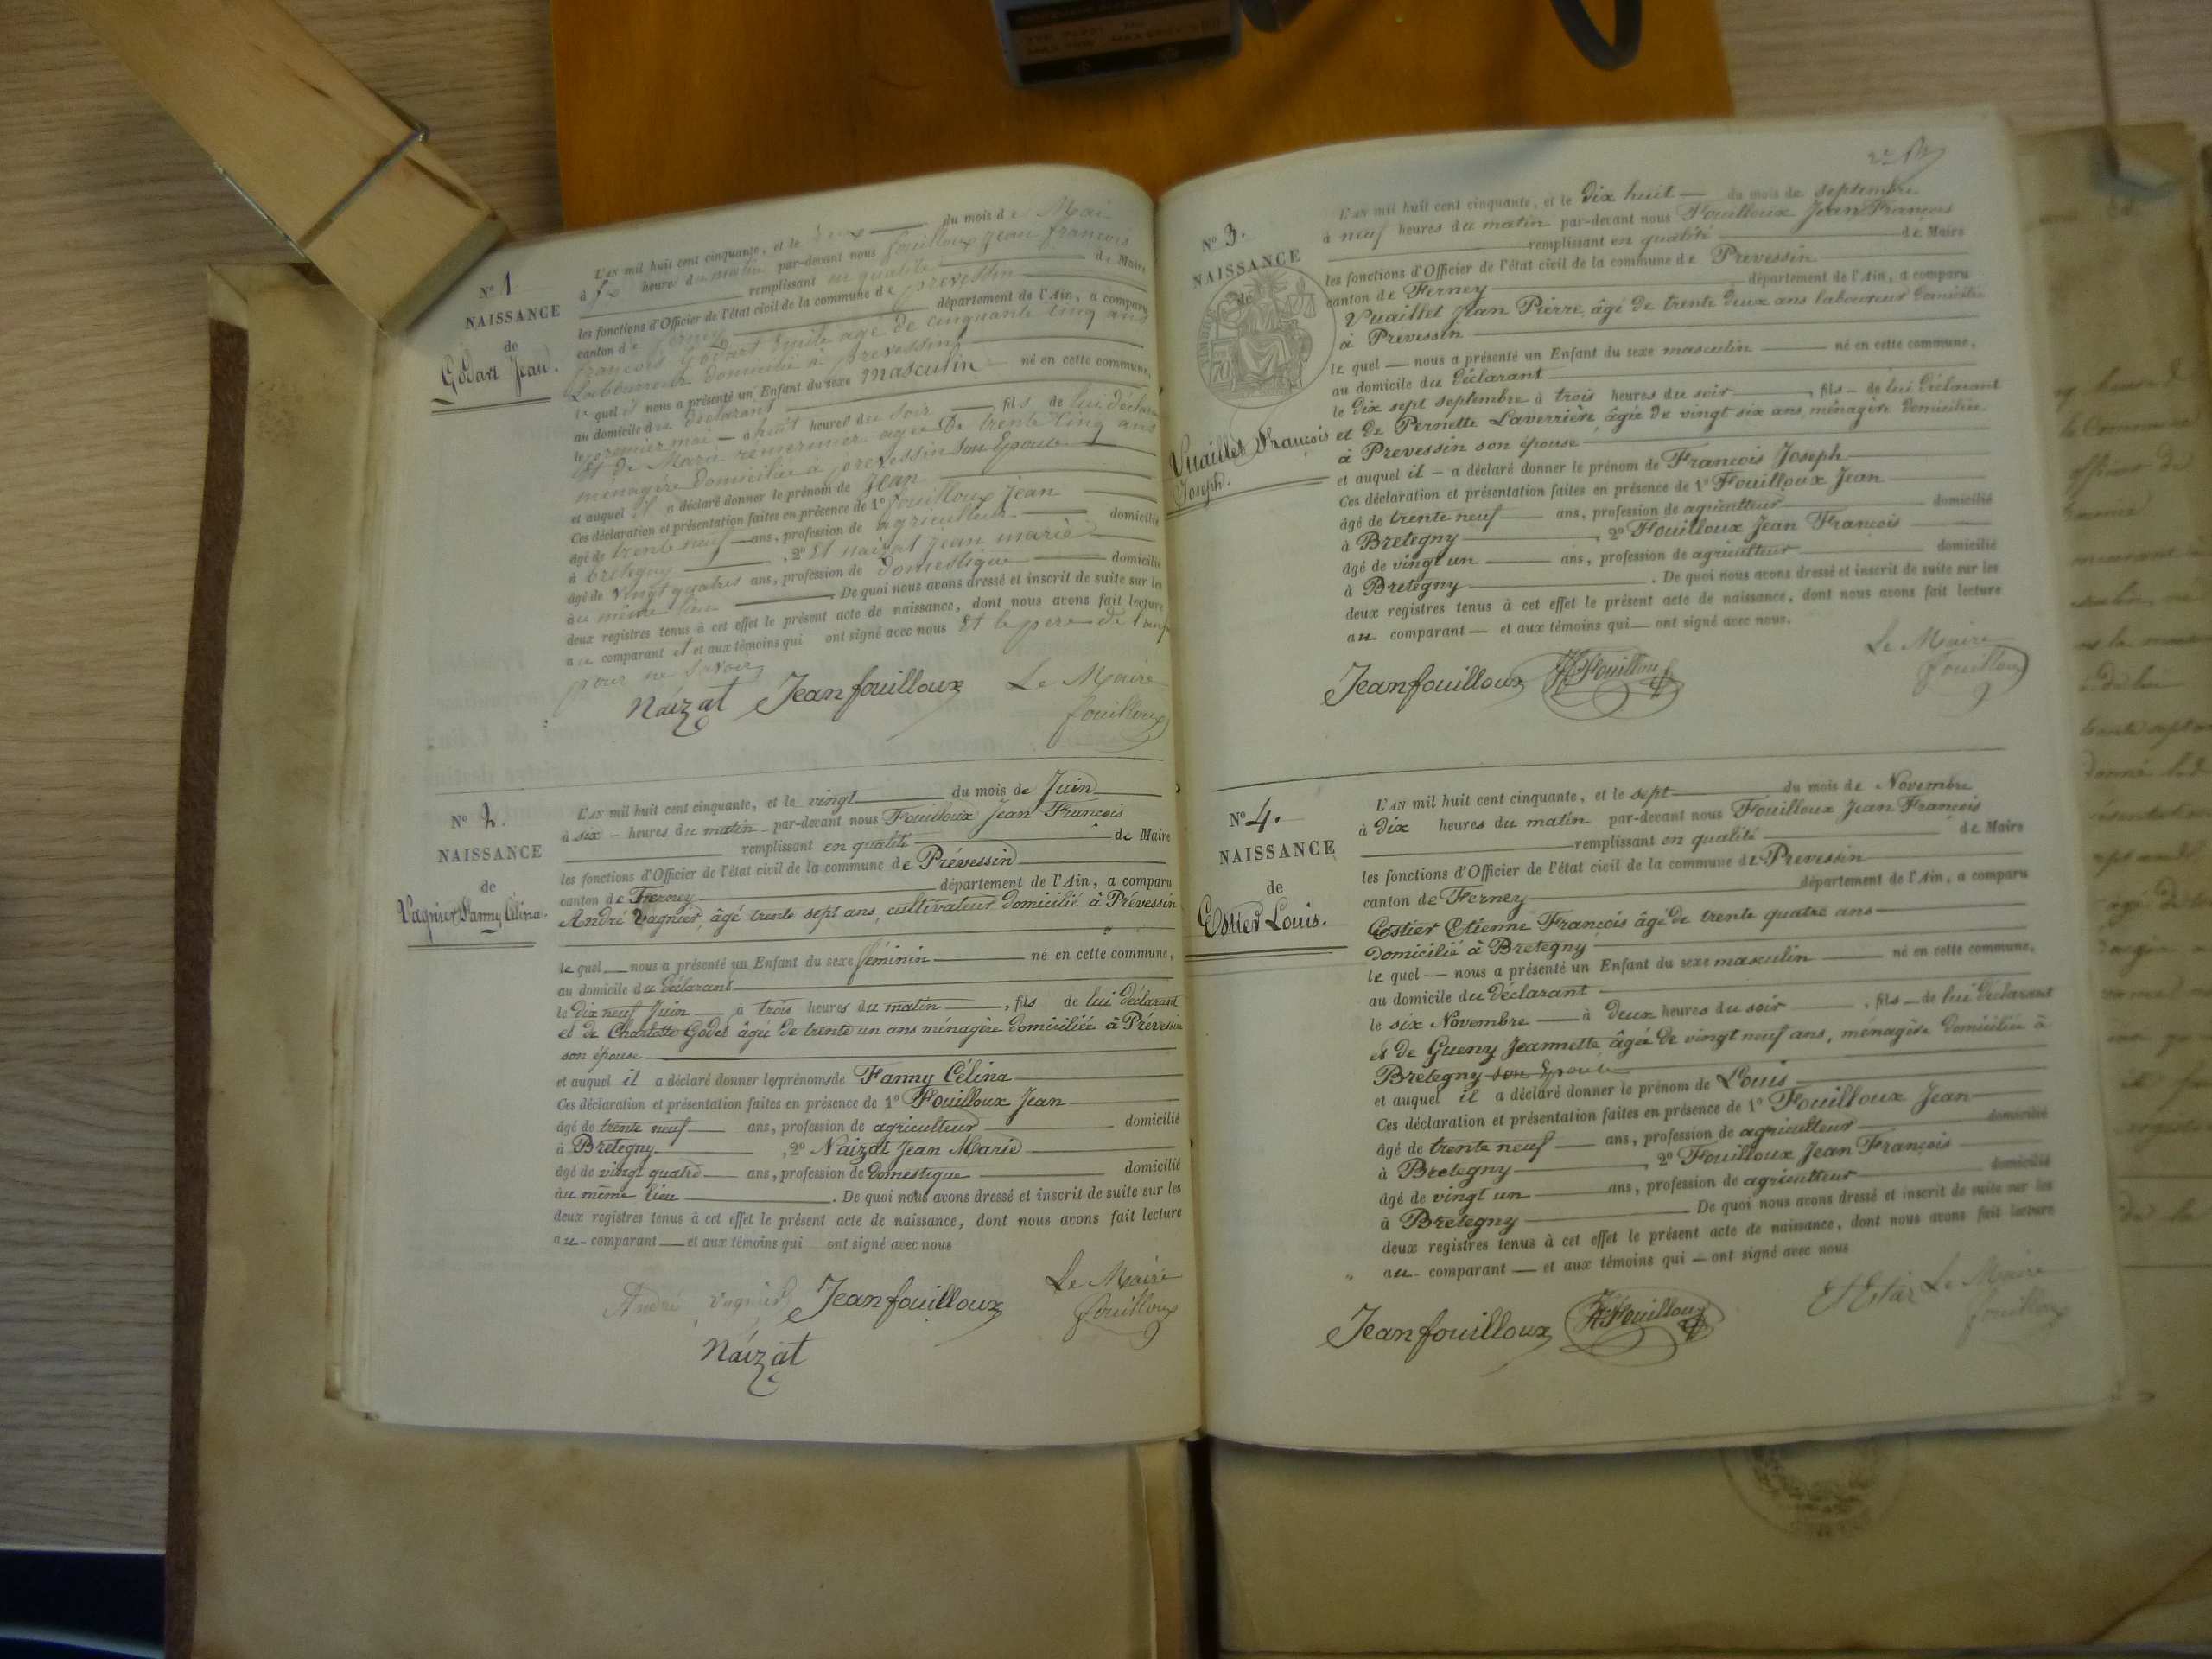 N° 1.
NAISSANCE
de
Godart Jean.
L'AN mil huit cent cinquante, et le deux du mois de Mai
à heures du matin par-devant nous fouilloux jean francois
remplissant en qualité de Maire
les fonctions d'Officier de l'état civil de la commune de prevessin
canton de ferney département de l'Ain, a comparu
francois Godart agé de cinquante cinq ans
Laboureur domicilié à prevessin
le quel il nous a présenté un Enfant du sexe masculin né en cette commune,
au domicile du déclarant
le premier mai à huit heures du soir, fils de lui déclarant
et de Marie agée De trente cinq ans
ménagère domiciliée à prevessin son Epouse
et auquel il a déclaré donner le prénom de Jean
Ces déclaration et présentation faites en présence de 1° fouilloux jean
âgé de trente neuf ans, profession de agriculteur domicilié
à bretegny, 2° Et naizat jean marie
âgé de vingt quatres ans, profession de domestique domicilié
au même lieu. De quoi nous avons dressé et inscrit de suite sur les
deux registres tenus à cet effet le présent acte de naissance, dont nous avons fait lecture
au comparant et et aux témoins qui ont signé avec nous Et le pere de l'enf
pour ne savoir
Naizat Jean fouilloux Le Maire
fouilloux
N° 2.
NAISSANCE
de
Vagnier Fanny Célina.
L'AN mil huit cent cinquante, et le vingt du mois de Juin
à six heures du matin par-devant nous Fouilloux Jean François
remplissant en qualité de Maire
les fonctions d'Officier de l'état civil de la commune de Prévessin
canton de Ferney département de l'Ain, a comparu
André Vagnier, âgé trente sept ans, cultivateur domicilié à Prévessin
le quel nous a présenté un Enfant du sexe féminin né en cette commune,
au domicile du déclarant
le dix neuf Juin à trois heures du matin, fils de lui déclarant
et de Charlotte Godet âgée de trente un ans ménagère domiciliée à Prévessin
son épouse
et auquel il a déclaré donner les prénoms de Fanny Célina
Ces déclaration et présentation faites en présence de 1° Fouilloux Jean
âgé de trente neuf ans, profession de agriculteur domicilié
à Bretegny, 2° Naizat Jean Marie
âgé de vingt quatre ans, profession de domestique domicilié
au même lieu. De quoi nous avons dressé et inscrit de suite sur les
deux registres tenus à cet effet le présent acte de naissance, dont nous avons fait lecture
au comparant et aux témoins qui ont signé avec nous
André Vagnier Jean fouilloux Le Maire
fouilloux
Naizat
N° 3.
NAISSANCE
de
Vuaillet François
Joseph.
L'AN mil huit cent cinquante, et le dix huit du mois de septembre
à neuf heures du matin par-devant nous Fouilloux Jean François
remplissant en qualité de Maire
les fonctions d'Officier de l'état civil de la commune de Prevessin
canton de Ferney département de l'Ain, a comparu
Vuaillet Jean Pierre, âgé de trente deux ans laboureur domicilié
à Prévessin
le quel nous a présenté un Enfant du sexe masculin né en cette commune,
au domicile du déclarant
le dix sept septembre à trois heures du soir, fils de lui déclarant
et de Pernette Laverrière âgée de vingt six ans, ménagère domiciliée
à Prevessin son épouse
et auquel il a déclaré donner le prénom de François Joseph
Ces déclaration et présentation faites en présence de 1° Fouilloux Jean
âgé de trente neuf ans, profession de agriculteur domicilié
à Bretegny, 2° Fouilloux Jean François
âgé de vingt un ans, profession de agriculteur domicilié
à Bretegny. De quoi nous avons dressé et inscrit de suite sur les
deux registres tenus à cet effet le présent acte de naissance, dont nous avons fait lecture
au comparant et aux témoins qui ont signé avec nous.
Le Maire
Jean fouilloux Fouilloux fouilloux
N° 4.
NAISSANCE
de
Estier Louis.
L'AN mil huit cent cinquante, et le sept du mois de Novembre
à dix heures du matin par-devant nous Fouilloux Jean François
remplissant en qualité de Maire
les fonctions d'Officier de l'état civil de la commune de Prevessin
canton de Ferney département de l'Ain, a comparu
Estier Etienne François âgé de trente quatre ans
domicilié à Bretegny
le quel nous a présenté un Enfant du sexe masculin né en cette commune,
au domicile du déclarant
le six Novembre à deux heures du soir, fils de lui déclarant
et de Gueny Jeannette âgée de vingt neuf ans, ménagère domiciliée à
Bretegny son Epouse
et auquel il a déclaré donner le prénom de Louis
Ces déclaration et présentation faites en présence de 1° Fouilloux Jean
âgé de trente neuf ans, profession de agriculteur domicilié
à Bretegny, 2° Fouilloux Jean François
âgé de vingt un ans, profession de agriculteur domicilié
à Bretegny De quoi nous avons dressé et inscrit de suite sur les
deux registres tenus à cet effet le présent acte de naissance, dont nous avons fait lecture
au comparant et aux témoins qui ont signé avec nous
Estier Le Maire
Jean fouilloux Fouilloux fouilloux